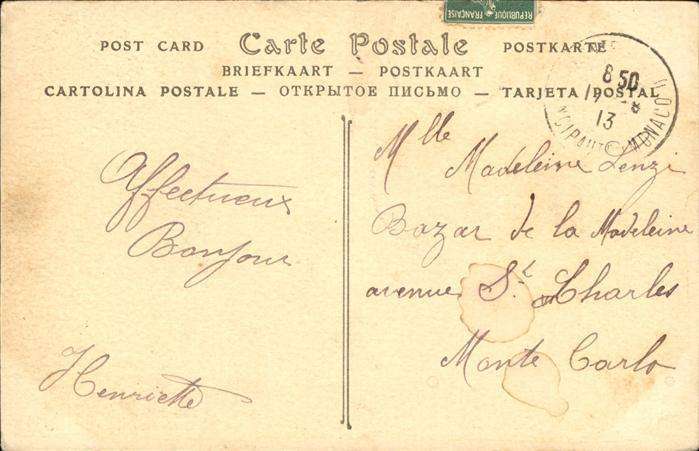 RÉPUBLIQUE
FRANÇAISE
POST CARD Carte Postale POSTKARTE
BRIEFKAART — POSTKAART
CARTOLINA POSTALE — ОТКРЫТОЕ ПИСЬМО — TARJETA POSTAL
8 50
13
MONACO
Affectueux
Bonjour
Henriette
Mlle
Madeleine Lenzi
Bazar de la Madeleine
avenue St Charles
Monte Carlo